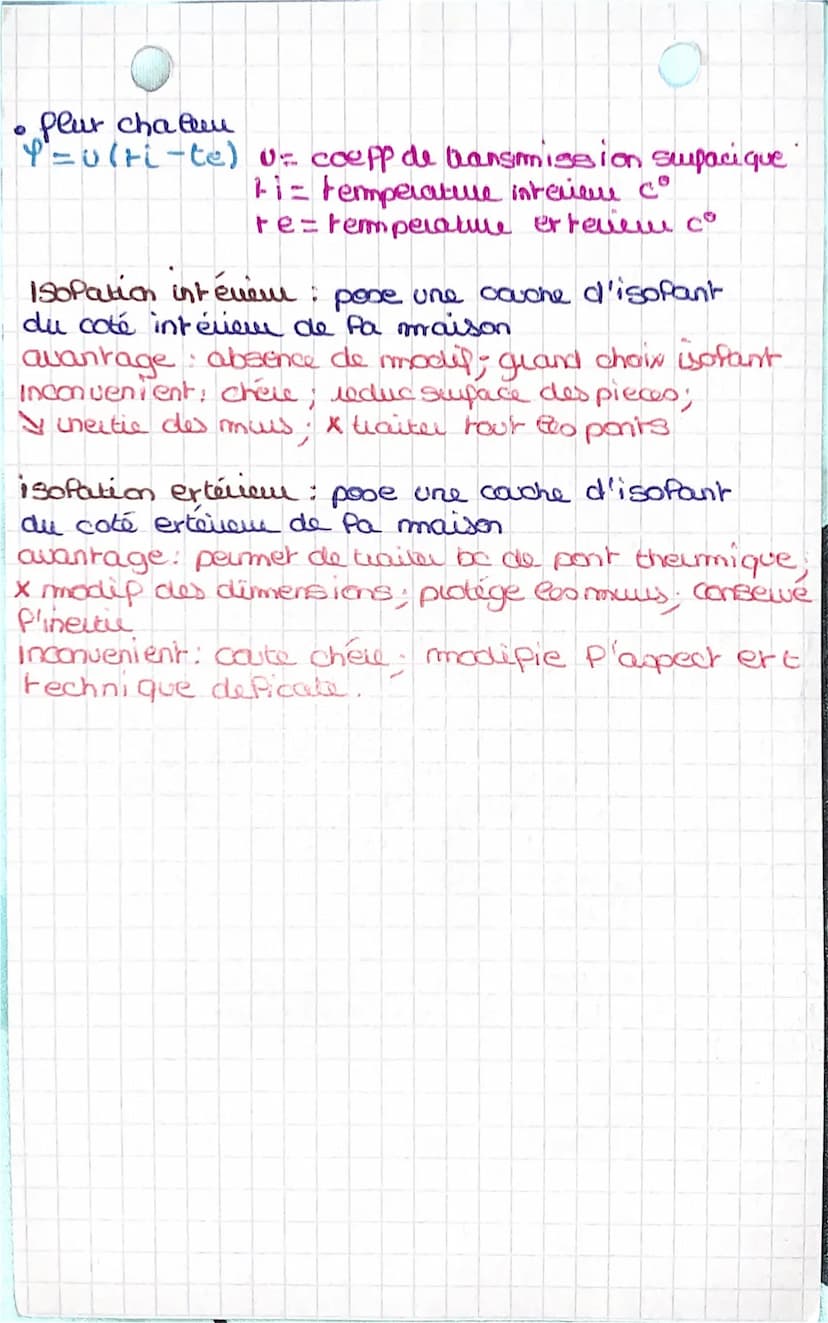 • flux chaleur
φ = U (ti - te) U = coeff de transmission surfacique
ti = température intérieur C°
te = température extérieur C°
Isolation intérieur : pose une couche d'isolant
du coté intérieur de la maison
avantage : absence de modif ; grand choix isolant
inconvenient : chère ; reduc surface des pieces ;
↘ inertie des murs ; x traiter tout les ponts
isolation extérieur : pose une couche d'isolant
du coté extérieur de la maison
avantage : permet de traiter bc de pont thermique ;
x modif des dimensions ; protége les murs ; conserve
l'inertie
inconvenient : coute chère ; modifie l'aspect ext
technique delicate.